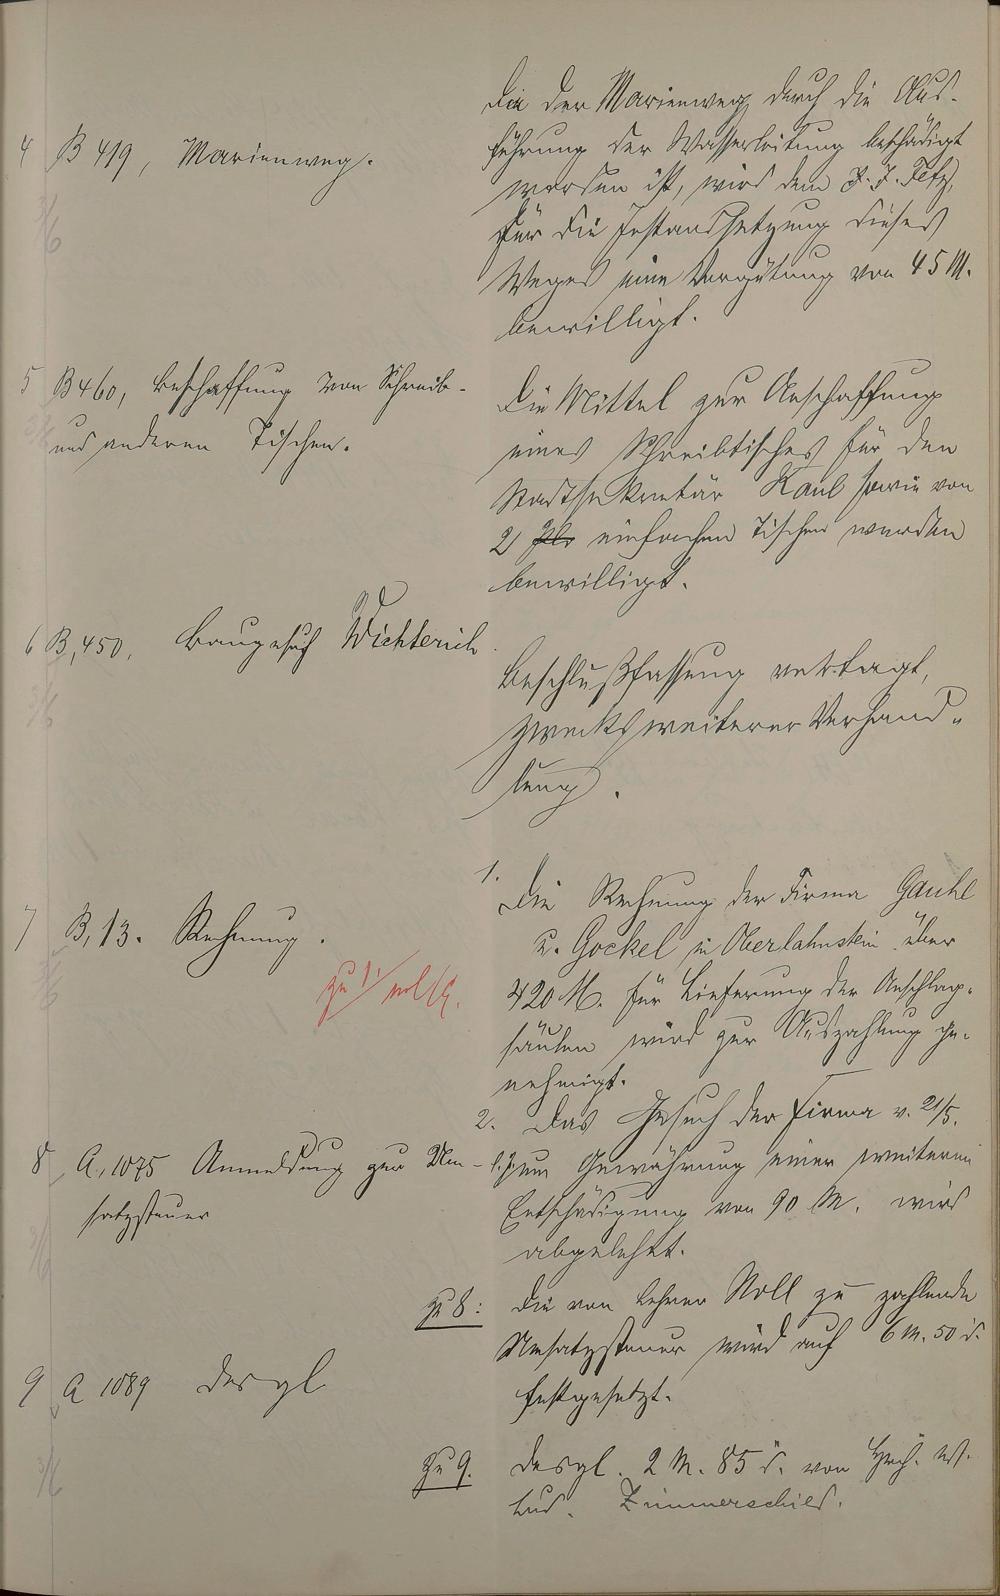 4 B 419, Marienweg.
Da der Marienweg durch die Aus-
führung der Wasserleitung beschädigt
worden ist, wird dem J. J. Fetz,
für die Instandsetzung dieses
Weges eine Vergütung von 45 M.
bewilligt.
5 B 460, Beschaffung von Schreib-
und anderen Tischen.
Die Mittel zur Anschaffung
eines Schreibtisches für den
Stadtsekretär Kaul sowie von
2 einfachen Tischen werden
bewilligt.
6 B, 450, Baugesuch Wichterich
Beschlußfassung vertagt,
zwecks weiterer Verhand-
lung.
7 B, 13. Rechnung.
zu 1.
1. Die Rechnung der Firma Gauhl
u. Gockel in Oberlahnstein über
420 M. für Lieferung der Anschlag-
säulen wird zur Auszahlung ge-
nehmigt.
2. Das Gesuch der Firma v. 21/5.
l. J. um Gewährung einer weiteren
Entschädigung von 90 M. wird
abgelehnt.
8 A, 1075 Anmeldung zur Um-
satzsteuer
zu 8: Die von Lehrer Noll zu zahlende
Umsatzsteuer wird auf 6 M. 50 d.
festgesetzt.
9 A 1089 desgl
zu 9. desgl. 2 M. 85 d. von
Lud. Zimmerschied.